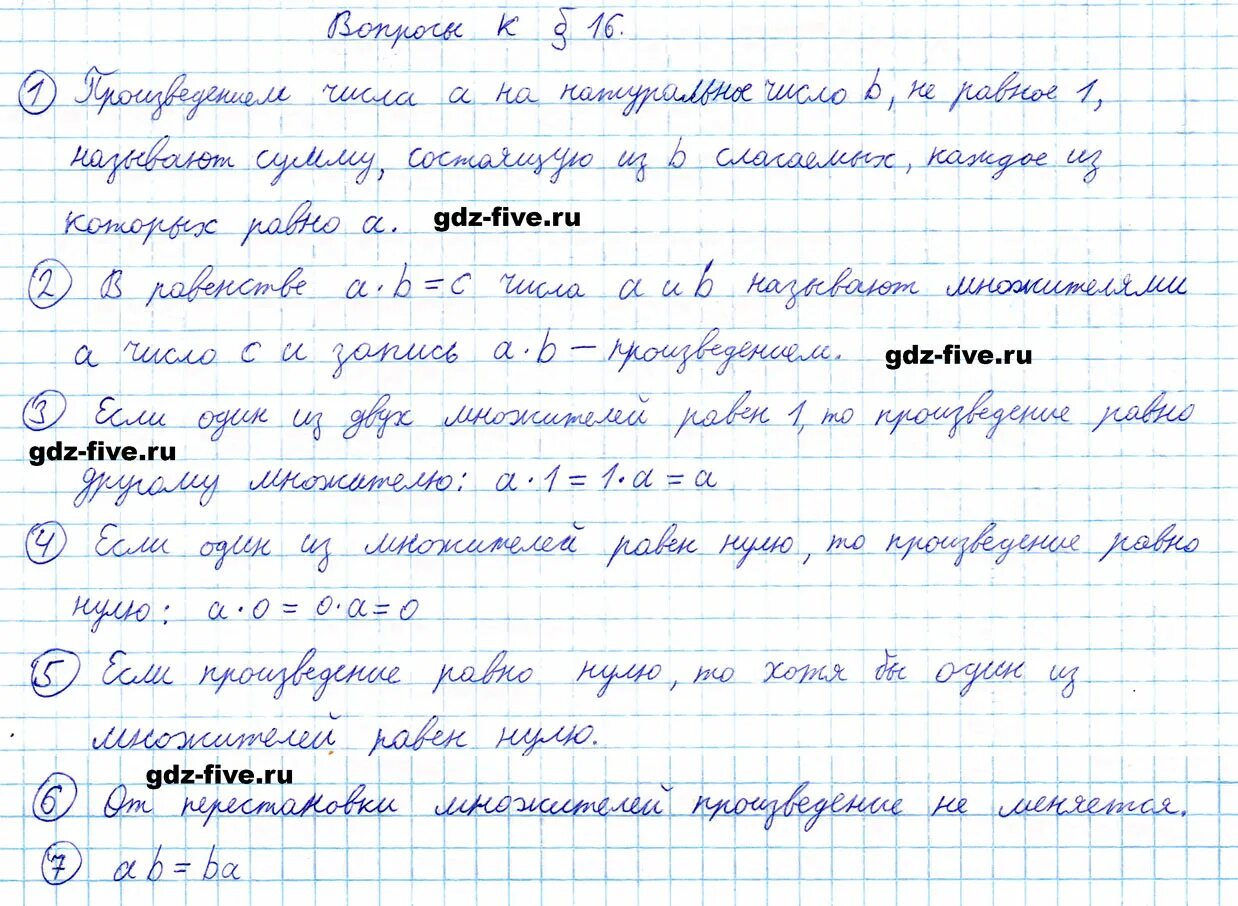 Вопросы к § 16.
1 Произведением числа a на натуральное число b, не равное 1,
называют сумму, состоящую из b слагаемых, каждое из
которых равно a. gdz-five.ru
2 В равенстве a·b=c числа a и b называют множителями
а число c и запись a·b – произведением. gdz-five.ru
3 Если один из двух множителей равен 1, то произведение равно
gdz-five.ru
другому множителю: a·1=1·a=a
4 Если один из множителей равен нулю, то произведение равно
нулю: a·0=0·a=0
5 Если произведение равно нулю, то хотя бы один из
множителей равен нулю.
gdz-five.ru
6 От перестановки множителей произведение не меняется.
7 ab=ba